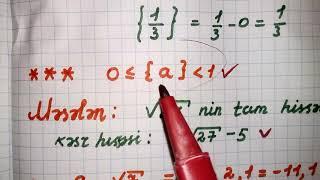 {1/3} = 1/3 - 0 = 1/3
*** 0 ≤ {a} < 1 ✓
Məsələn: nin tam hissə
kəsr hissəsi: √27 - 5 ✓
2,1 = -11,1